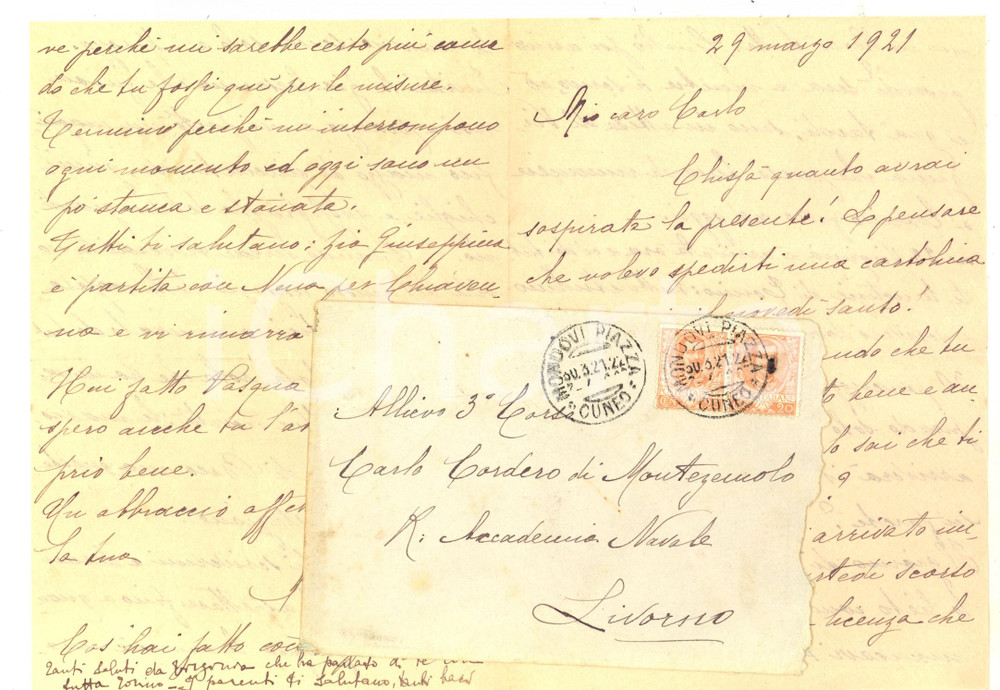 ve perchè mi sarebbe certo più como
do che tu fossi quì per le misure.
Termino perchè m'interrompono
ogni momento ed oggi sono un
po' stanca e stonata.
Tutti ti salutano: zia Giuseppina
è partita con Nina per Chiaven
na e vi rimarrà
Hai fatto Pasqua
spero anche tu l'a
prio bene.
Un abbraccio affet
la tua
Cos'hai fatto con
Tanti saluti da che ha parlato di te con
tutta Torino - I parenti ti salutano, tanti baci
29 marzo 1921
Mio caro Carlo
Chissà quanto avrai
sospirata la presente! E pensare
che volevo spedirti una cartolina
giovedì santo!
ndo che tu
to bene e au
lo sai che ti
9
arrivato in
rtedì scorso
licenza che
MONDOVI PIAZZA
30.3.21.
* CUNEO *
MONDOVI PIAZZA
30.3.21.
* CUNEO *
20
Allievo 3° Corso
Carlo Cordero di Montezemolo
R. Accademia Navale
Livorno